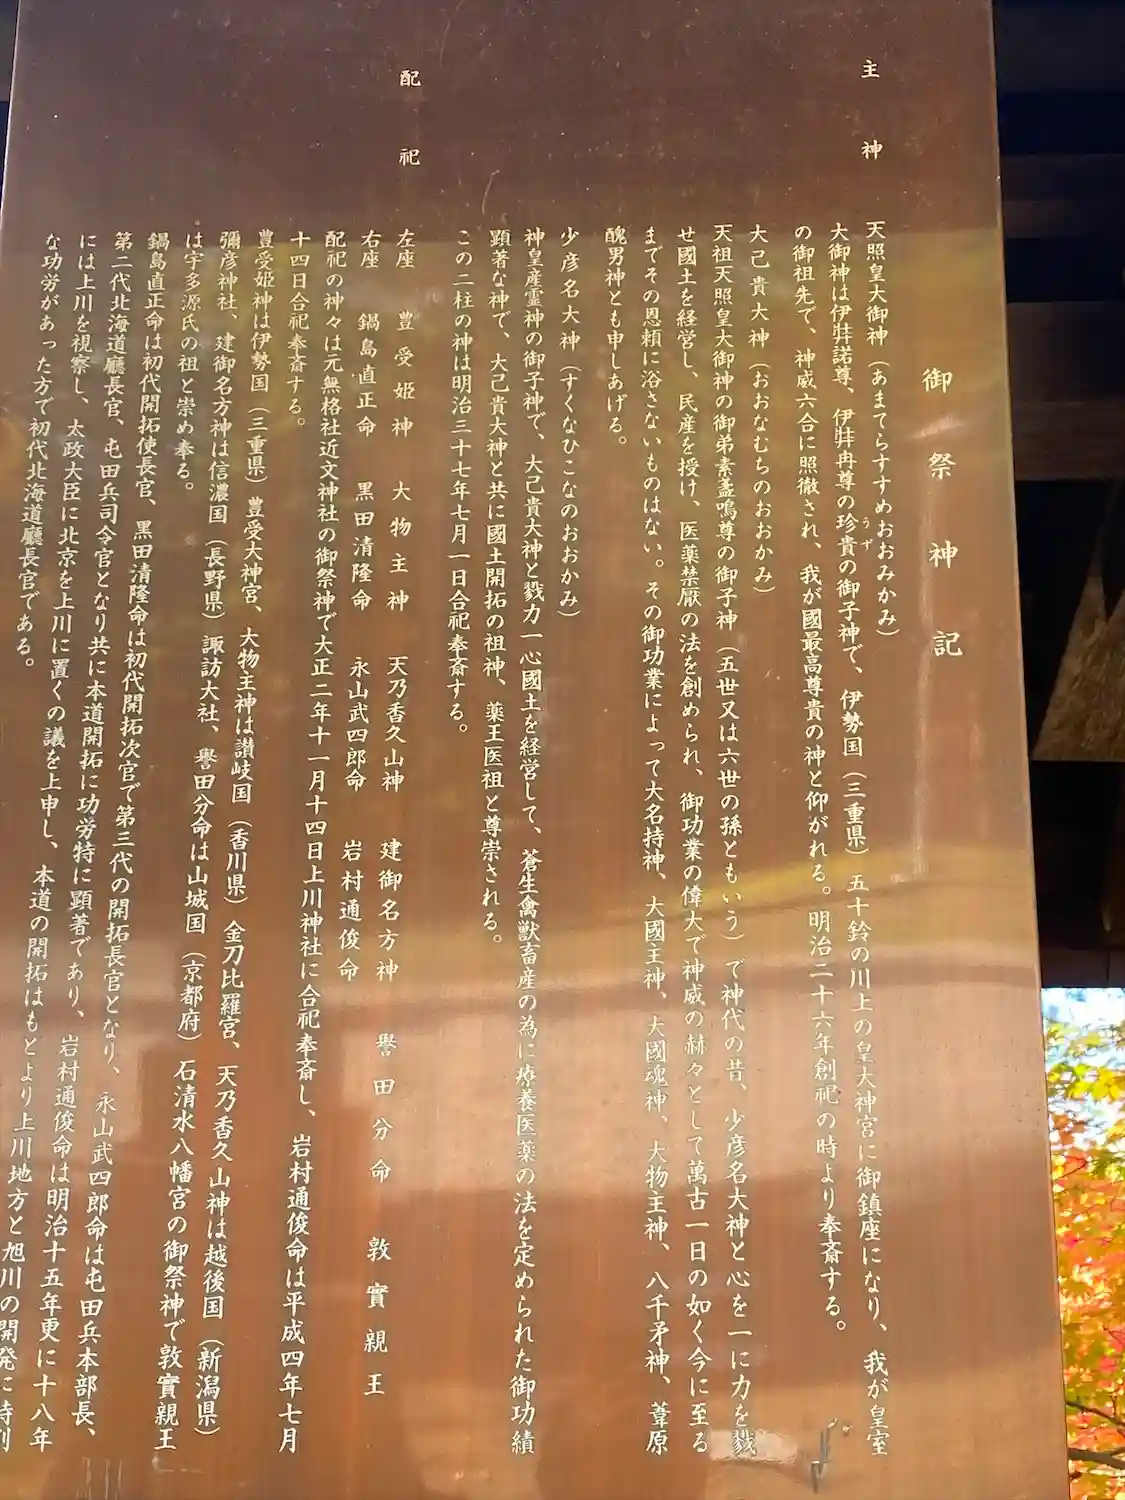 御祭神記
主神
天照皇大御神（あまてらすすめおおみかみ）
大御神は伊弉諾尊、伊弉冉尊の珍貴の御子神で、伊勢国（三重県）五十鈴の川上の皇大神宮に御鎮座になり、我が皇室
うず
の御祖先で、神威六合に照徹され、我が國最高尊貴の神と仰がれる。明治二十六年創祀の時より奉斎する。
大己貴大神（おおなむちのおおかみ）
天祖天照皇大御神の御弟素盞嗚尊の御子神（五世又は六世の孫ともいう）で神代の昔、少彦名大神と心を一に力を戮
せ國土を経営し、民産を授け、医薬禁厭の法を創められ、御功業の偉大で神威の赫々として萬古一日の如く今に至る
までその恩頼に浴さないものはない。その御功業によって大名持神、大國主神、大國魂神、大物主神、八千矛神、葦原
醜男神とも申しあげる。
少彦名大神（すくなひこなのおおかみ）
神皇産霊神の御子神で、大己貴大神と戮力一心國土を経営して、蒼生禽獣畜産の為に療養医薬の法を定められた御功績
顕著な神で、大己貴大神と共に國土開拓の祖神、薬王医祖と尊崇される。
この二柱の神は明治三十七年七月一日合祀奉斎する。
配祀
左座　豊受姫神　大物主神　天乃香久山神　建御名方神　譽田分命　敦實親王
右座　鍋島直正命　黒田清隆命　永山武四郎命　岩村通俊命
配祀の神々は元無格社近文神社の御祭神で大正二年十一月十四日上川神社に合祀奉斎し、岩村通俊命は平成四年七月
十四日合祀奉斎する。
豊受姫神は伊勢国（三重県）豊受大神宮、大物主神は讃岐国（香川県）金刀比羅宮、天乃香久山神は越後国（新潟県）
彌彦神社、建御名方神は信濃国（長野県）諏訪大社、譽田分命は山城国（京都府）石清水八幡宮の御祭神で敦實親王
は宇多源氏の祖と崇め奉る。
鍋島直正命は初代開拓使長官、黒田清隆命は初代開拓次官で第三代の開拓長官となり、永山武四郎命は屯田兵本部長、
第二代北海道廳長官、屯田兵司令官となり共に本道開拓に功労特に顕著であり、岩村通俊命は明治十五年更に十八年
には上川を視察し、太政大臣に北京を上川に置くの議を上申し、本道の開拓はもとより上川地方と旭川の開発に特別
な功労があった方で初代北海道廳長官である。